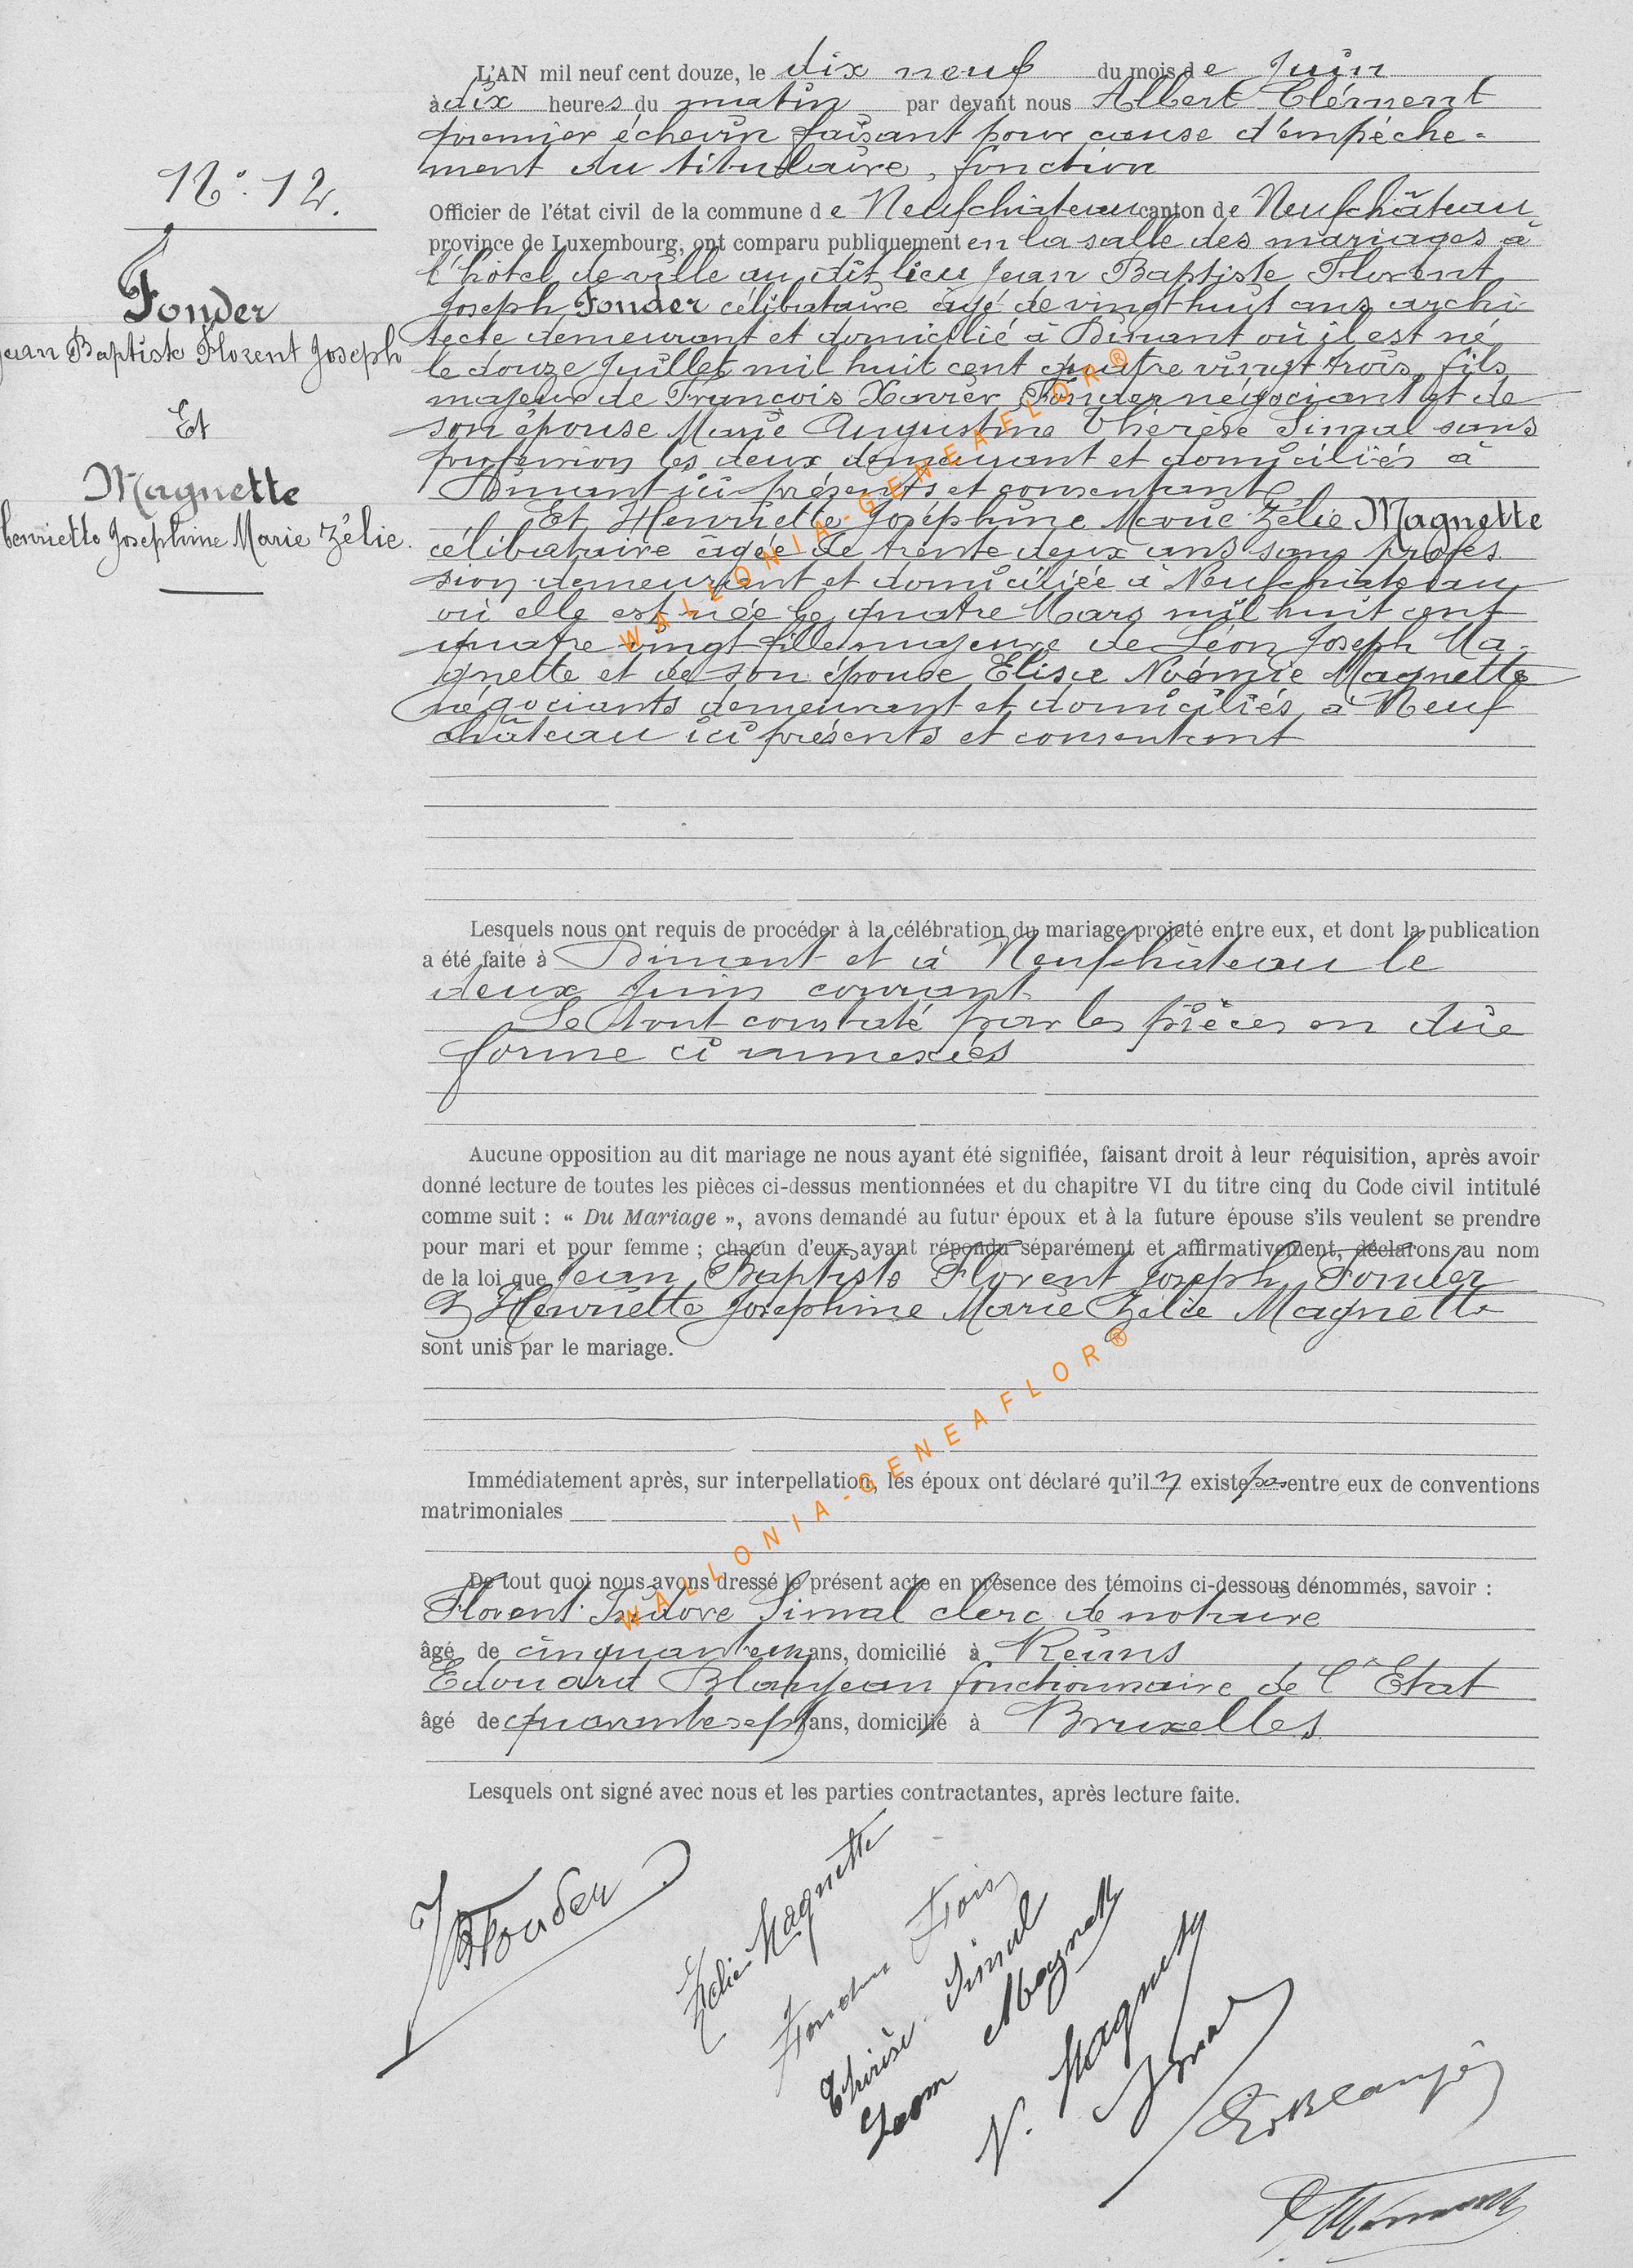 L'AN mil neuf cent douze, le dix neuf du mois de Juin
à dix heures du matin par devant nous Albert Clément
premier échevin faisant pour cause d'empêche-
ment du titulaire, fonction
Officier de l'état civil de la commune de Neufchâteau canton de Neufchâteau
province de Luxembourg, ont comparu publiquement en la salle des mariages à
l'hôtel de ville au dit lieu Jean Baptiste Florent
Joseph Fonder célibataire âgé de vingt huit ans archi-
tecte demeurant et domicilié à Dinant où il est né
le douze Juillet mil huit cent quatre vingt trois, fils
majeur de François Xavier Fonder négociant et de
son épouse Marie Augustine Thérèse Simal sans
profession les deux demeurant et domiciliés à
Dinant ici présents et consentant
Et Henriette Joséphine Marie Zélie Magnette
célibataire âgée de trente deux ans sans profes
sion demeurant et domiciliée à Neufchâteau
où elle est née le quatre Mars mil huit cent
quatre vingt fille majeure de Léon Joseph Ma-
gnette et de son épouse Elise Noémie Magnette
négociants demeurant et domiciliés à Neuf
château ici présents et consentant
N°. 12.
Fonder
Jean Baptiste Florent Joseph
Et
Magnette
Henriette Josephine Marie Zélie.
Lesquels nous ont requis de procéder à la célébration du mariage projeté entre eux, et dont la publication
a été faite à Dinant et à Neufchâteau le
deux Juin courant
Le tout constaté par les pièces en due
forme ci annexées
Aucune opposition au dit mariage ne nous ayant été signifiée, faisant droit à leur réquisition, après avoir
donné lecture de toutes les pièces ci-dessus mentionnées et du chapitre VI du titre cinq du Code civil intitulé
comme suit : « Du Mariage », avons demandé au futur époux et à la future épouse s'ils veulent se prendre
pour mari et pour femme ; chacun d'eux ayant répondu séparément et affirmativement, déclarons au nom
de la loi que Jean Baptiste Florent Joseph Fonder
& Henriette Josephine Marie Zélie Magnette
sont unis par le mariage.
Immédiatement après, sur interpellation, les époux ont déclaré qu'il n'existe pas entre eux de conventions
matrimoniales
De tout quoi nous avons dressé le présent acte en présence des témoins ci-dessous dénommés, savoir :
Florent Isidore Simal clerc de notaire
âgé de cinquante ans, domicilié à Reims
Edouard Blanjean fonctionnaire de l'Etat
âgé de quarante sept ans, domicilié à Bruxelles
Lesquels ont signé avec nous et les parties contractantes, après lecture faite.
JBFonder
Zélie Magnette
Fonder Fois
Thérèse Simal
Leon Magnette
N. Magnette
Simal
Ed Blanjean
WALLONIA-GENEAFLOR®
WALLONIA-GENEAFLOR®